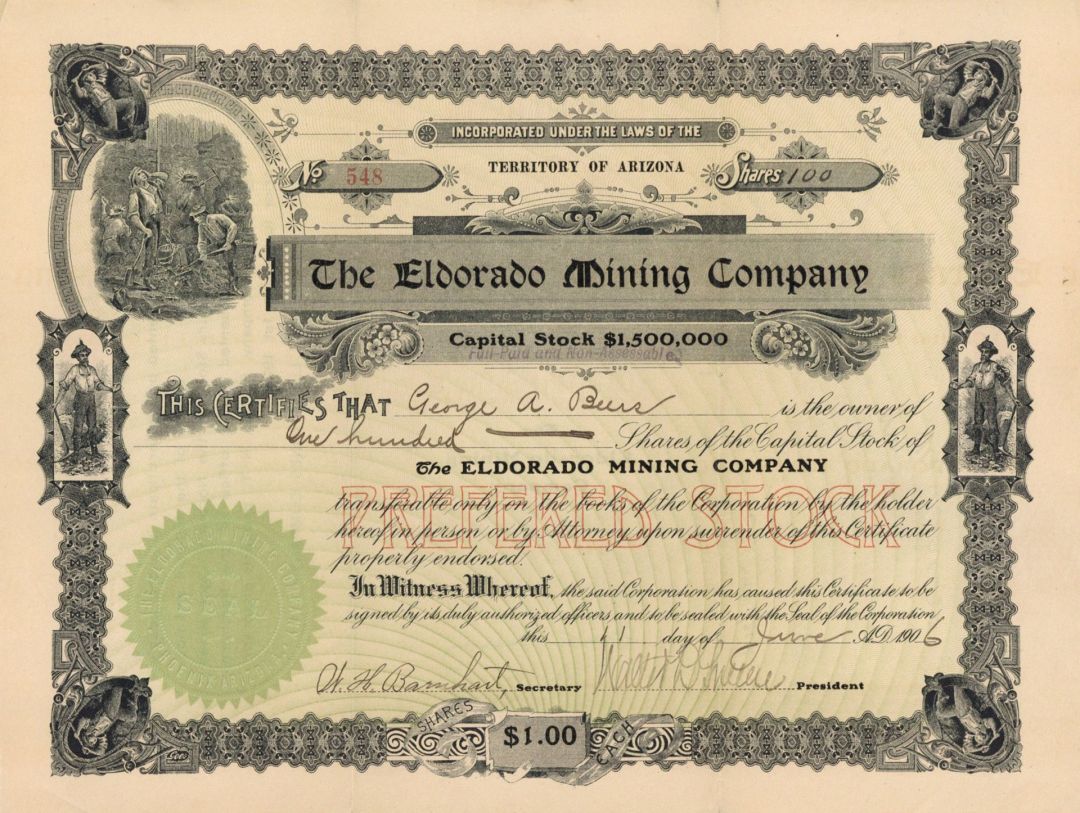 INCORPORATED UNDER THE LAWS OF THE
TERRITORY OF ARIZONA
No. 548
Shares 100
The Eldorado Mining Company
Capital Stock $1,500,000
Full-Paid and Non-Assessable
THIS CERTIFIES THAT George A. Beers is the owner of
One hundred Shares of the Capital Stock of
The ELDORADO MINING COMPANY
PREFERRED STOCK
transferable only on the books of the Corporation by the holder
hereof in person or by Attorney upon surrender of this Certificate
properly endorsed.
In Witness Whereof, the said Corporation has caused this Certificate to be
signed by its duly authorized officers and to be sealed with the Seal of the Corporation
this 11 day of June A.D. 1906
W. H. Barnhart, Secretary Walter President
THE ELDORADO MINING COMPANY
SEAL
PHOENIX ARIZONA
SHARES $1.00 EACH